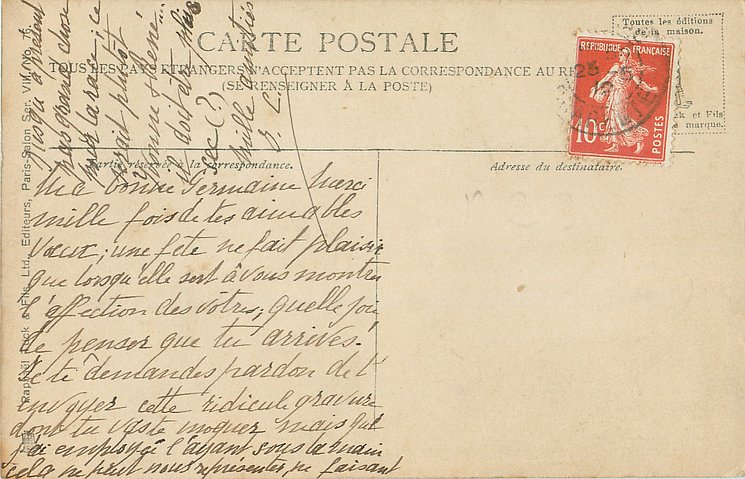 CARTE POSTALE
TOUS LES PAYS ETRANGERS N'ACCEPTENT PAS LA CORRESPONDANCE AU
(SE RENSEIGNER À LA POSTE)
Toutes les éditions
de la maison.
REPUBLIQUE FRANÇAISE
10c
POSTES
ck et Fils
marque.
Partie réservée à la correspondance.
Adresse du destinataire.
Raphaël Tuck & Fils, Ltd., Editeurs, Paris-Salon Ser. VIII, No. 75
Ma bonne Germaine merci
mille fois de tes aimables
vœux; une fête ne fait plaisir
que lorsqu'elle sert à vous montrer
l'affection des vôtres; quelle joie
de penser que tu arrives!
Je te demandes pardon de t'
envoyer cette ridicule gravure
dont tu vas te moquer mais que
j'ai employée l'ayant sous la main
cela ne peut nous représenter, ne faisant
jusqu'à présent
pas bonne chose
sur la soie; ce
serait plutôt
Yonne & René...
il doit être plus
sec (?)
Mille amitiés